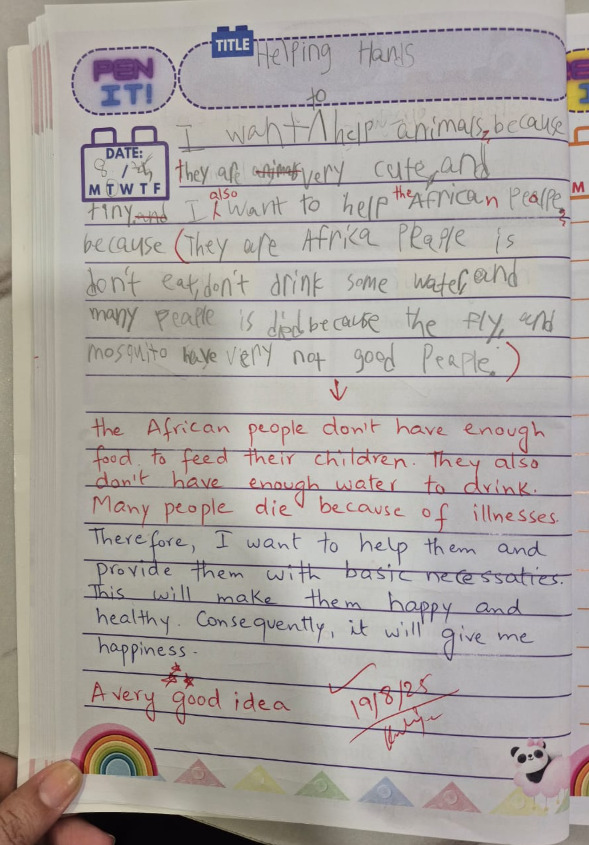 PEN IT!
TITLE Helping Hands
to
I want ^ help animals, because
DATE:
8 /
M T W T F
they are animas very cute, and
also the
tiny, and I ^ want to help African Peaple,
because (They are Africa Peaple is
don't eat, don't drink some water, and
many Peaple is died because the Fly, and
mosquito have very not good Peaple.)
↓
the African people don't have enough
food to feed their children. They also
don't have enough water to drink.
Many people die because of illnesses.
Therefore, I want to help them and
provide them with basic necessaties.
This will make them happy and
healthy. Consequently, it will give me
happiness.
A very good idea
19/8/25
M